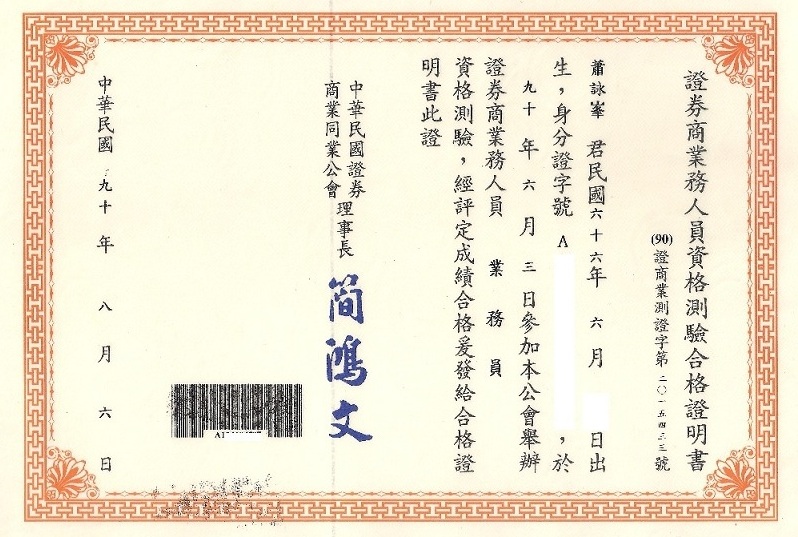 證券商業務人員資格測驗合格證明書
(90)證商業測證字第二〇一五四三三號
蕭詠峯 君民國六十六年 六 月 日出
生，身分證字號 A ，於
九十 年 六 月 三 日參加本公會舉辦
證券商業務人員 業務員
資格測驗，經評定成績合格爰發給合格證
明書此證
中華民國證券
商業同業公會
理事長
簡鴻文
中華民國 九十 年 八 月 六 日